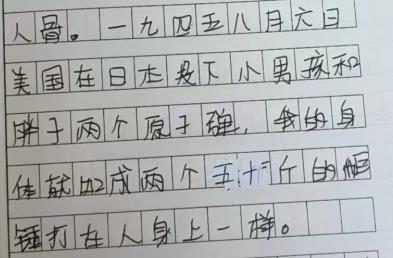 人骨。一九四五八月六日
美国在日本投下小男孩和
胖子两个原子弹，我的身
体就 成两个五十斤的
锤打在人身上一样。